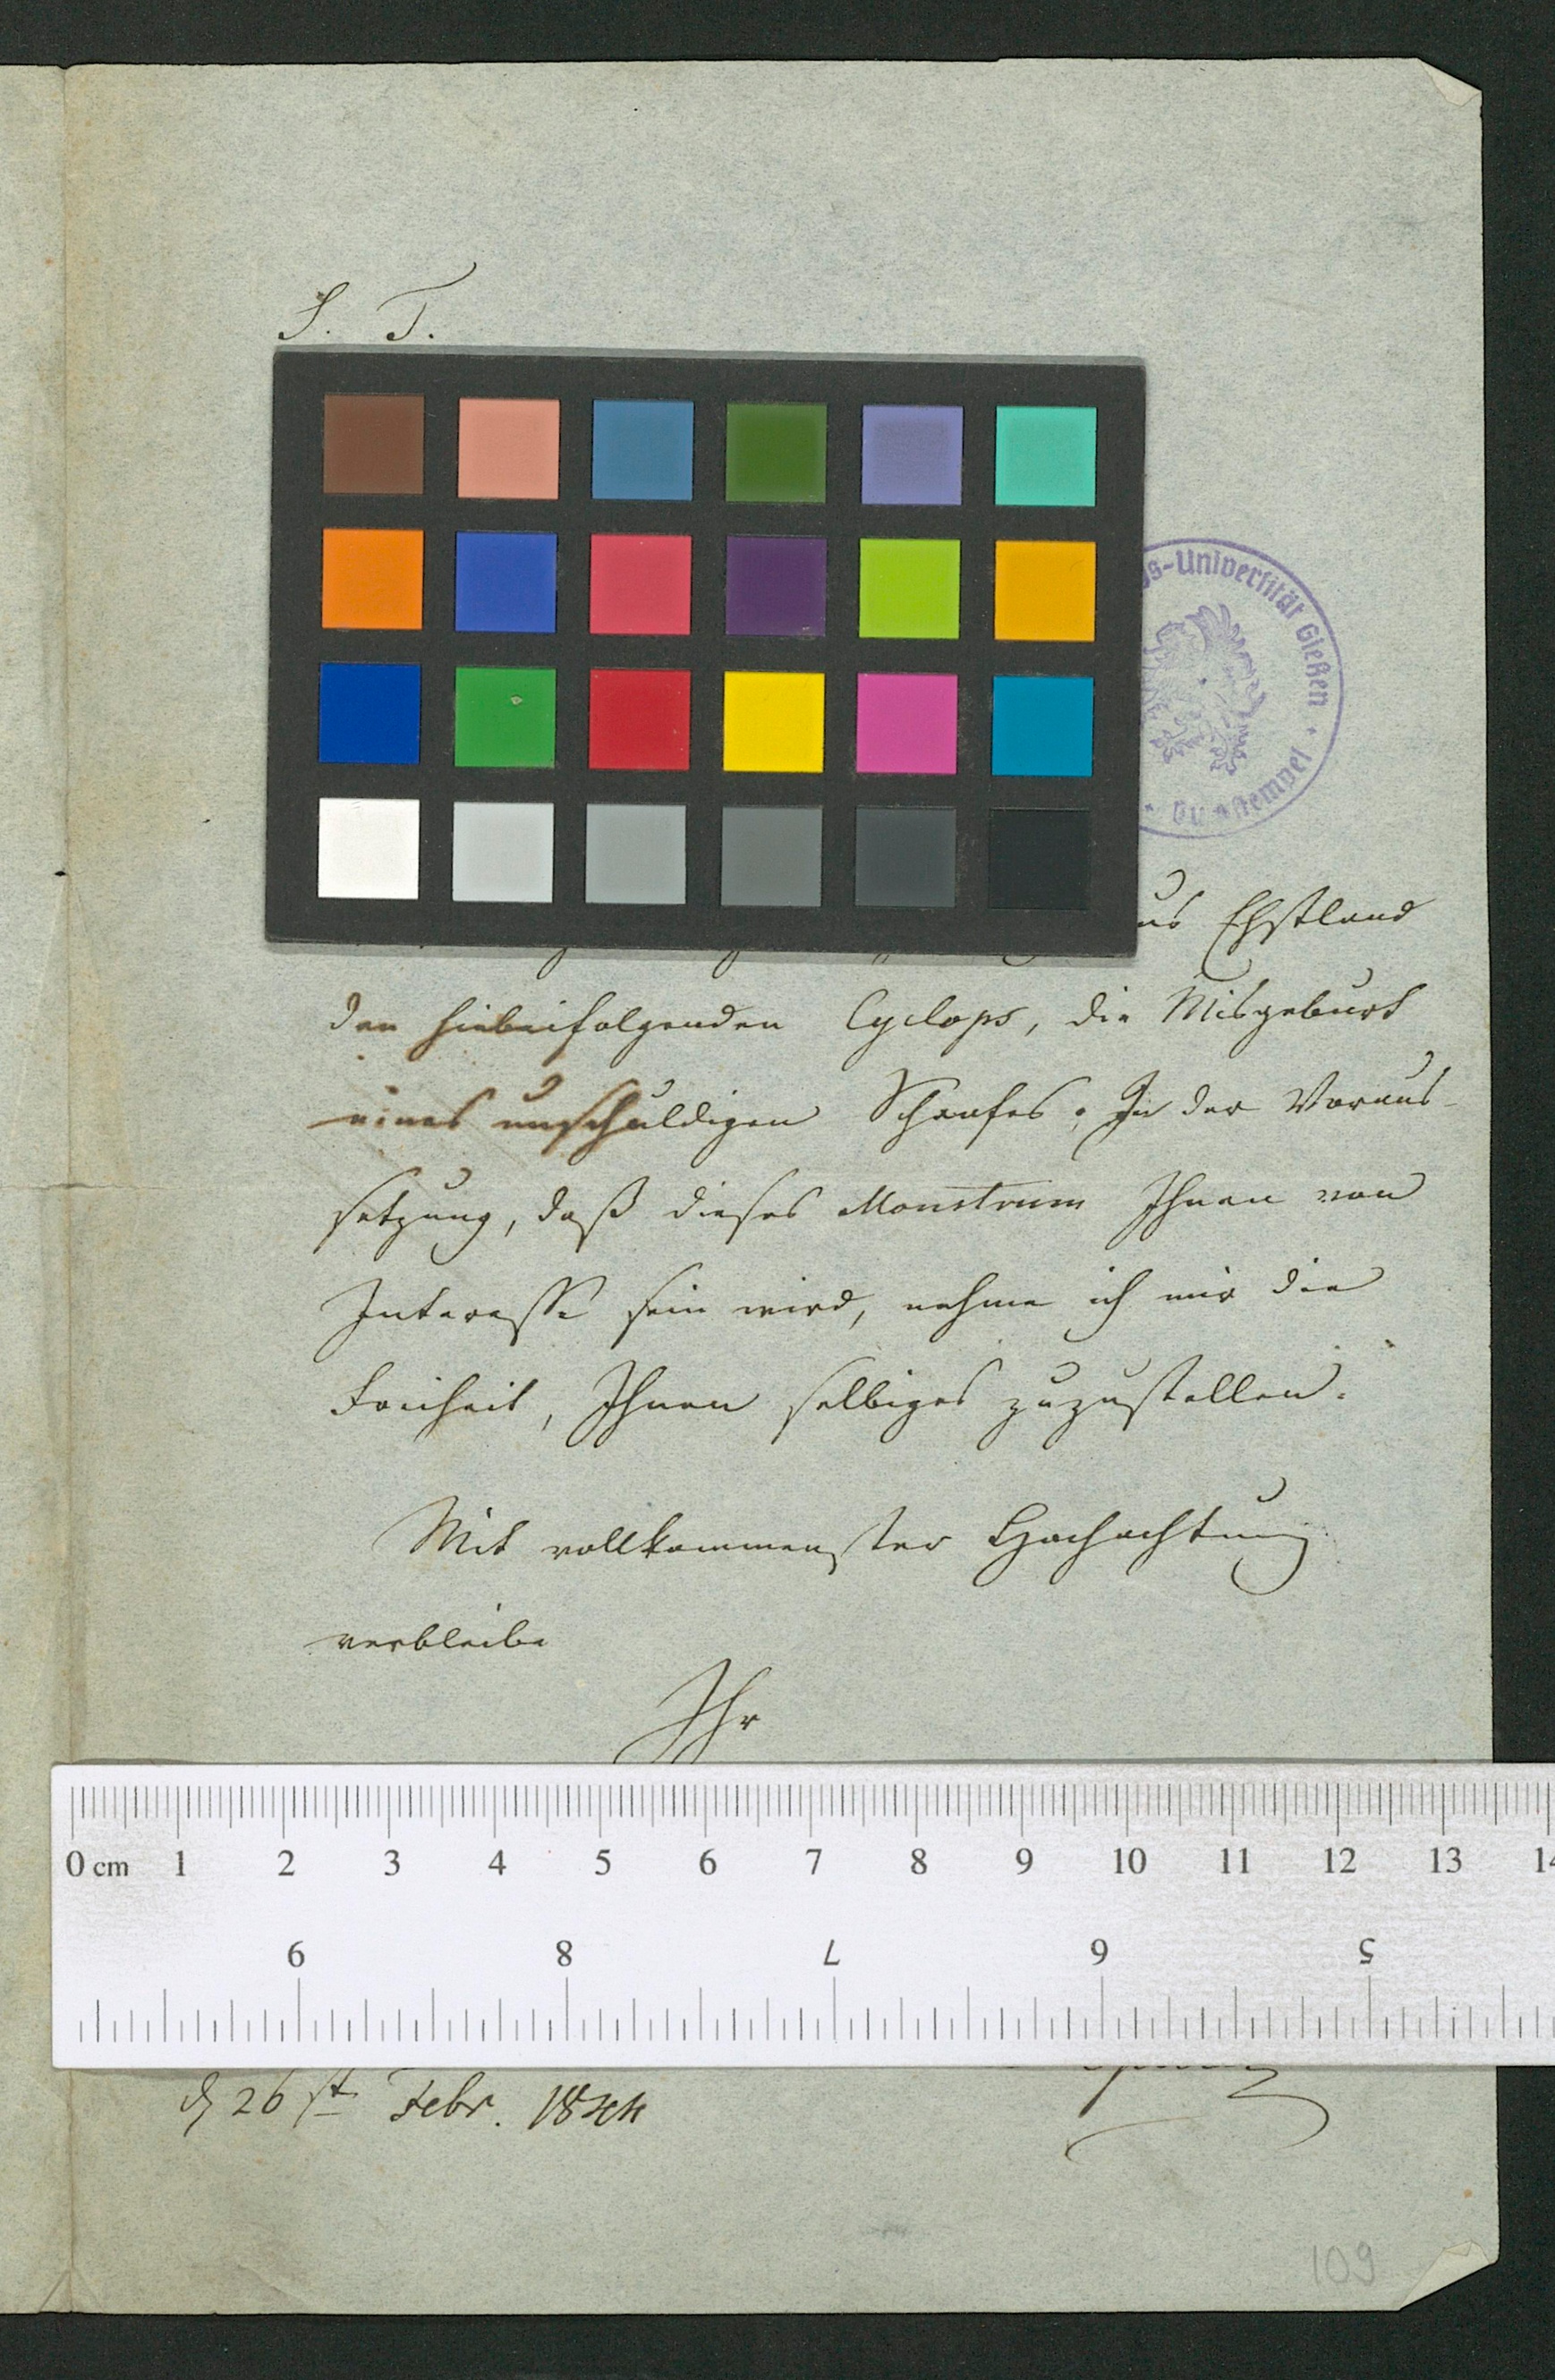 S. T.
s-Universität Gießen
us Ehstland
den hiebeifolgenden Cyclops, die Misgeburt
eines unschuldigen Schaafes. In der Voraus-
setzung, daß dieses Monstrum Ihnen von
Interesse sein wird, nehme ich mir die
Freiheit, Ihnen selbiges zuzustellen.
Mit vollkommenster Hochachtung
verbleibe
Ihr
0 cm 1 2 3 4 5 6 7 8 9 10 11 12 13 14
9 8 7 6 5
d 26st Febr. 1844
109